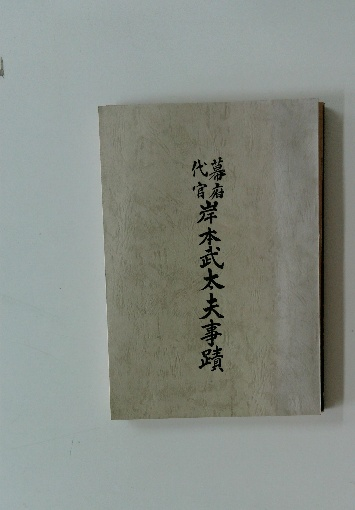 幕府
代官
岸本武太夫事蹟